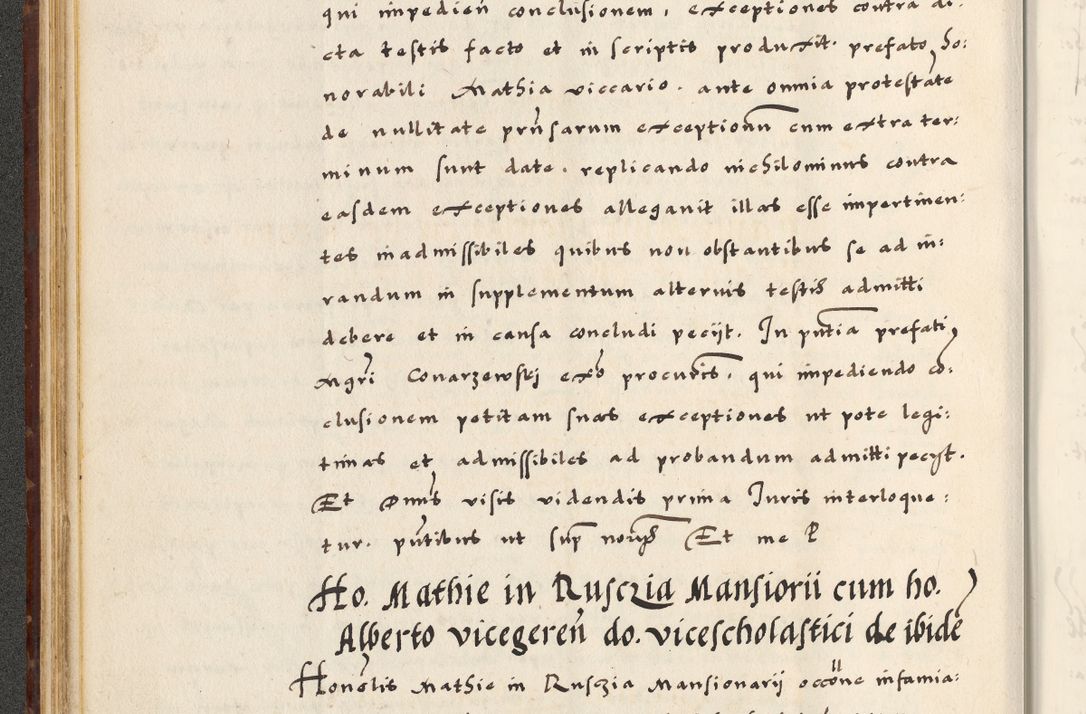 qui impedien conclusionem, exceptiones contra di-
cta testis facto et in scriptis produxit. prefato, ho:
norabili Mathia viccario. ante omnia protestate
de nullitate prnsarum exceptionu cum extra ter:
minum sunt date. replicando nichilominus contra
easdem exceptiones allegauit illas esse impertinen:
tes inadmissibiles quibus non obstantibus se ad iu:
randum in supplementum alterius testis admitti
debere et in causa concludi pecijt. In pntia prefati
Mgri Conarzewskj exo procuris. qui impediendo co:
clusionem petitam suas exceptiones ut pote legi:
timas et admissibiles ad probandum admitti pecijt.
Et Dnus visis videndis prima Iuris interloque:
tur. pntibus ut sup Et me P
Ho. Mathie in Ruszia Mansiorii cum ho.
Alberto vicegeren do. vicescholastici de ibide
Honolis Mathie in Ruszia Mansionarij occone infamia: